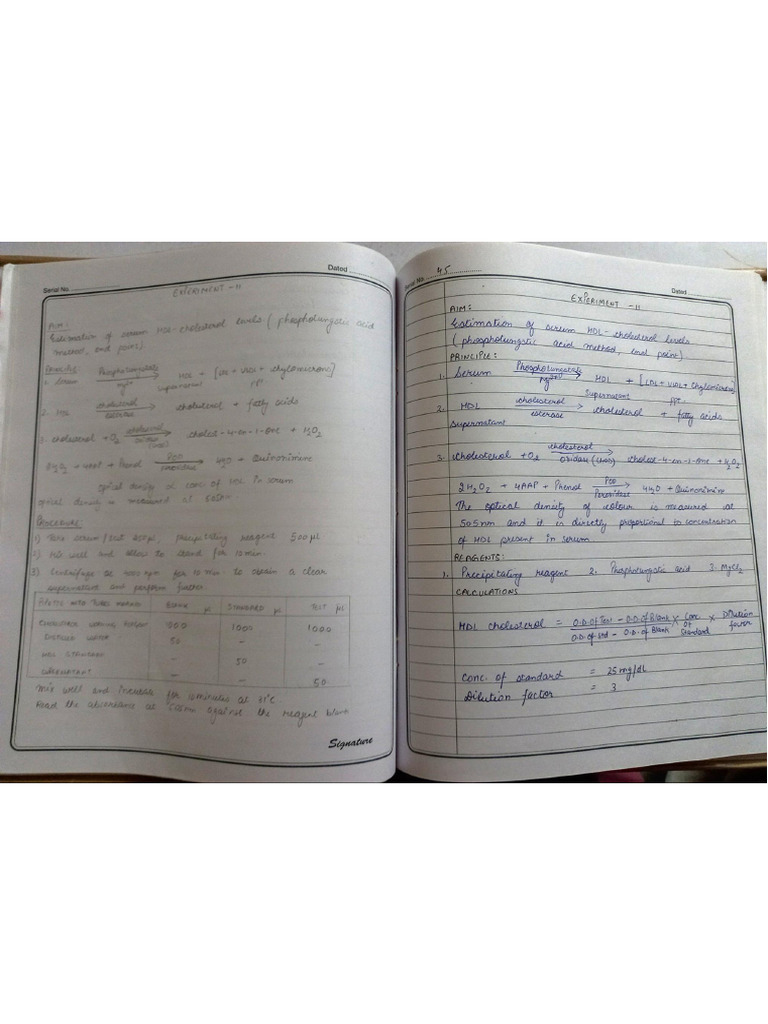 Serial No. ............
Dated ............
EXPERIMENT - 11
AIM:
Estimation of serum HDL-cholesterol levels (phosphotungstic acid
method, end point)
Principle:
1. Serum Phosphotungstate Mg2+ → HDL + [LDL + VLDL + chylomicrons]
supernatant ppt
2. HDL cholesterol esterase → cholesterol + fatty acids
3. cholesterol + O2 cholesterol oxidase → cholest-4-en-3-one + H2O2
2H2O2 + 4AAP + Phenol POD Peroxidase → 4H2O + Quinonimine
optical density ∝ conc of HDL in serum
optical density is measured at 505nm.
Procedure:
1) Take serum/test 250μl, precipitating reagent 500μl
2) Mix well and allow to stand for 10min.
3) Centrifuge at 4000 rpm for 10min. to obtain a clear
supernatant and perform further.
PIPETTE INTO TUBES MARKED BLANK μL STANDARD μL TEST μL
CHOLESTEROL WORKING REAGENT 1000 1000
DISTILLED WATER 50 - -
HDL STANDARD - 50 -
SUPERNATANT - - 50
mix well and incubate for 10minutes at 37°C
Read the absorbance at 505nm against the reagent blank
Signature
Serial No. 45
Dated ............
EXPERIMENT - 11
AIM:
Estimation of serum HDL-cholesterol levels
(phosphotungstic acid method, end point)
PRINCIPLE:
1. Serum Phosphotungstate Mg2+ → HDL + [LDL + VLDL + Chylomicrons]
Supernatant ppt.
2. HDL cholesterol esterase → cholesterol + fatty acids
supernatant
3. cholesterol + O2 cholesterol oxidase → cholest-4-en-3-one + H2O2
2H2O2 + 4AAP + Phenol POD Peroxidase → 4H2O + Quinonimine
The optical density of colour is measured at
505nm and it is directly proportional to concentration
of HDL present in serum.
REAGENTS:
1. Precipitating reagent 2. Phosphotungstic acid 3. MgCl2
CALCULATIONS
HDL cholesterol = O.D. of Test - O.D. of Blank / O.D. of Std - O.D. of Blank × Conc of Standard × Dilution factor
Conc. of standard = 25mg/dL
Dilution factor = 3